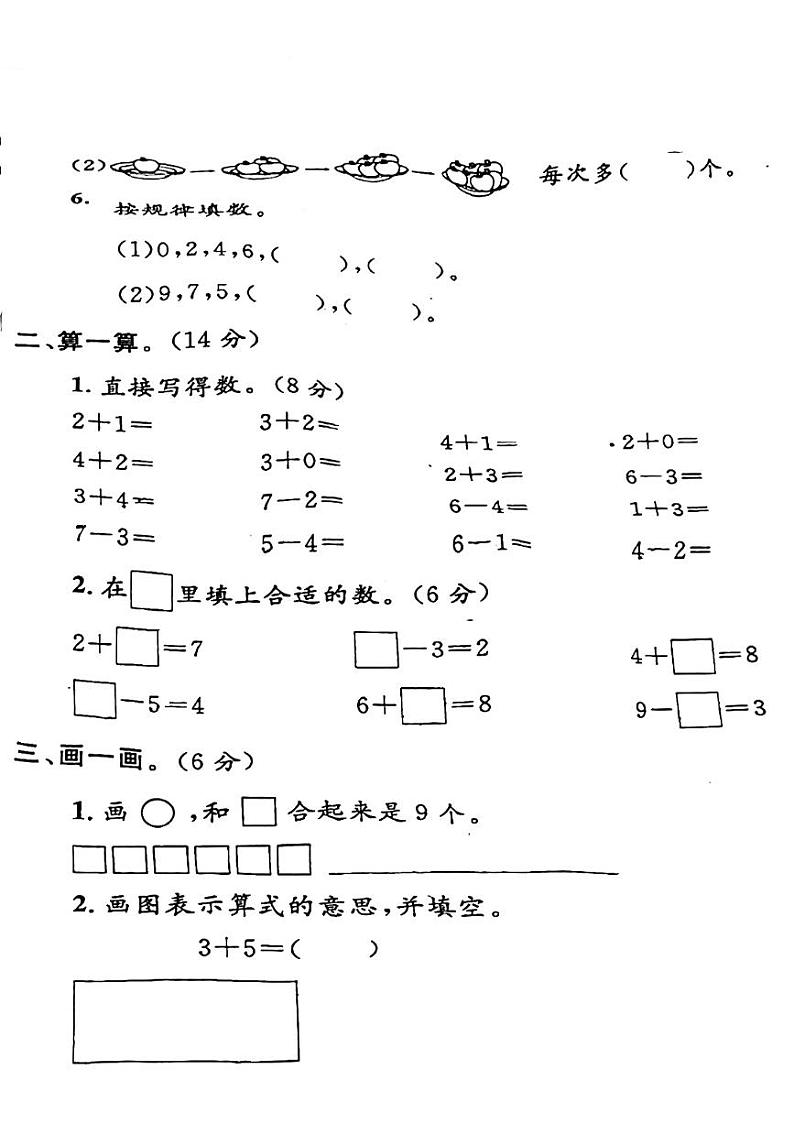 (2) — — — 每次多(　　)个。
6. 按规律填数。
(1)0,2,4,6,(　　),(　　)。
(2)9,7,5,(　　),(　　)。
二、算一算。(14 分)
1. 直接写得数。(8 分)
2+1=　3+2=　4+1=　2+0=
4+2=　3+0=　2+3=　6-3=
3+4=　7-2=　6-4=　1+3=
7-3=　5-4=　6-1=　4-2=
2. 在□里填上合适的数。(6 分)
2+□=7　□-3=2　4+□=8
□-5=4　6+□=8　9-□=3
三、画一画。(6 分)
1. 画○,和□合起来是 9 个。
□□□□□□ ____________
2. 画图表示算式的意思,并填空。
3+5=(　　)